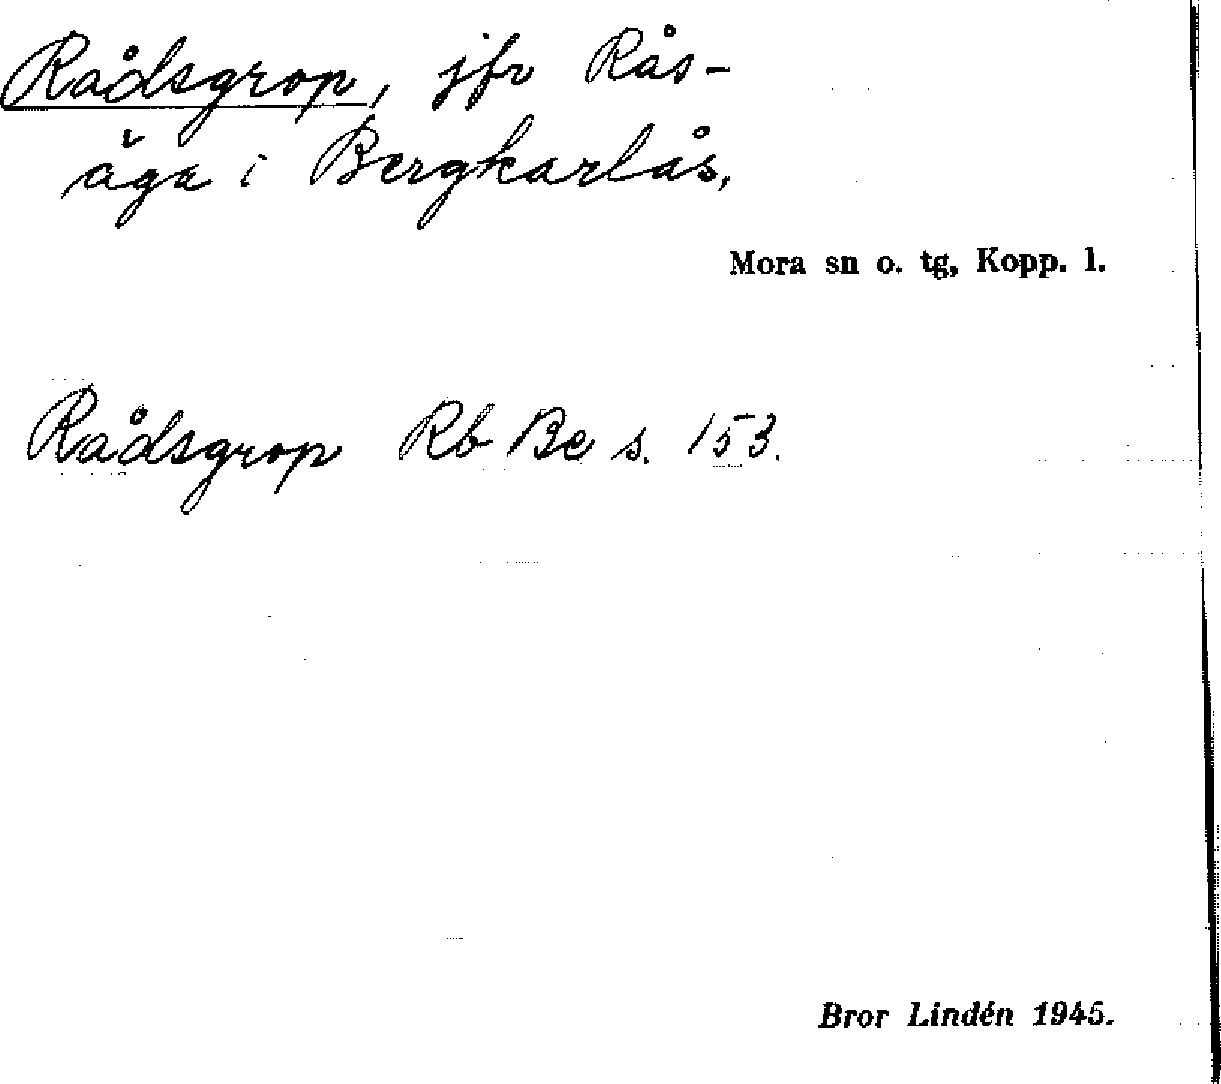 Rådsgrop, jfr Rås-
åga i Bergkarlås,
Mora sn o. tg, Kopp. l.
Rådsgrop Rb Be s. 153.
Bror Lindén 1945.